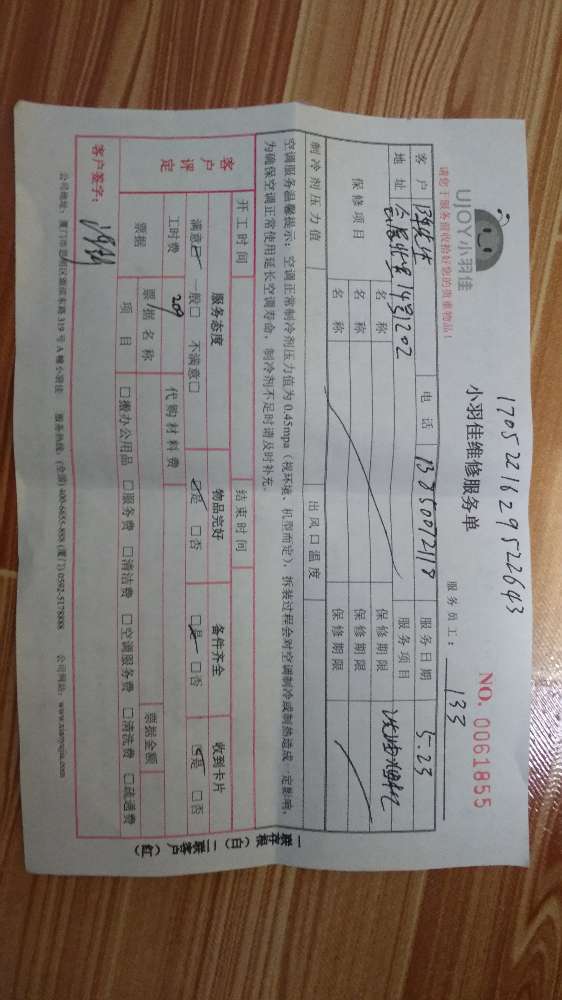 1705221629522643
UJOY小羽佳
请您于服务前收拾好您的贵重物品!
小羽佳维修服务单
NO. 0061855
服务员工: 133
客户 电话 13850072118 服务日期 5.23
地址 14号1202 服务项目
保修项目 名称 保修期限
名称 保修期限
名称 保修期限
制冷剂压力值 出风口温度
空调服务温馨提示:空调正常制冷剂压力值为0.45mpa(视环境、机型而定),拆装过程会对空调制冷或制热造成一定影响,
为确保空调正常使用延长空调寿命,制冷剂不足时请及时补充。
开工时间 结束时间
客户评定 服务态度 物品完好 备件齐全 收到卡片
满意☑ 一般□ 不满意□ ☑是 □否 ☑是 □否 ☑是 □否
工时费 209 代购材料费
票据 票据名称 票据金额
项目 □搬办公用品 □服务费 □清洁费 □空调服务费 □清洗费 □疏通费
客户签字:
一联存根(白) 二联客户(红)
公司地址:厦门市思明区湖滨东路319号A幢小羽佳 服务热线:(全国)400-6655-888 (厦门)0592-5178888 公司网站:www.xiaoyujia.com